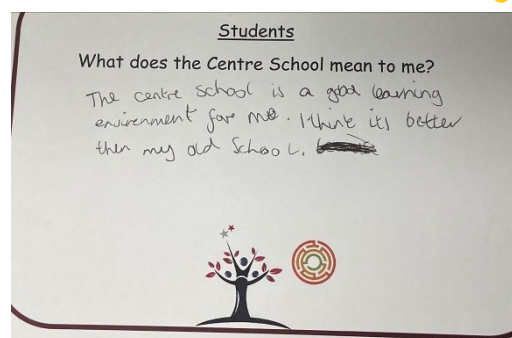 Students
What does the Centre School mean to me?
The centre school is a good learning
envirenment fore me. I think its better
then my old School.